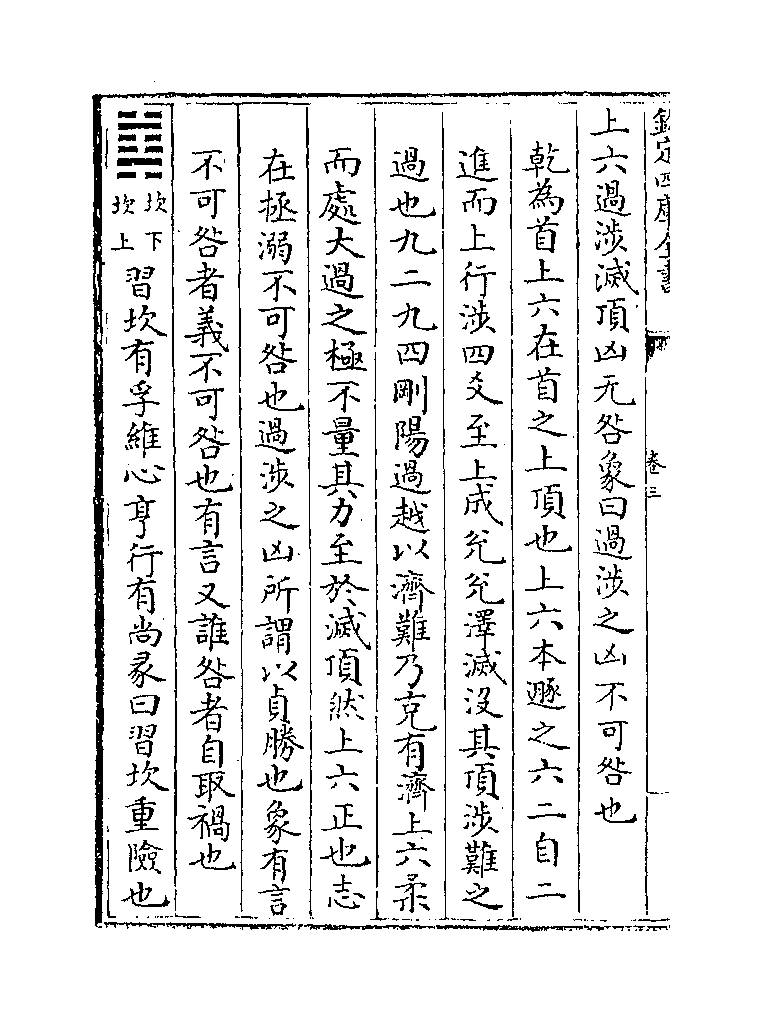 欽定四庫全書
卷三
上六過涉滅頂凶无咎象曰過涉之凶不可咎也
乾為首上六在首之上頂也上六本遯之六二自二
進而上行涉四爻至上成兊兊澤滅沒其頂涉難之
過也九二九四剛陽過越以濟難乃克有濟上六柔
而處大過之極不量其力至於滅頂然上六正也志
在拯溺不可咎也過涉之凶所謂以貞勝也象有言
不可咎者義不可咎也有言又誰咎者自取禍也
坎下
坎上
習坎有孚維心亨行有尚彖曰習坎重險也